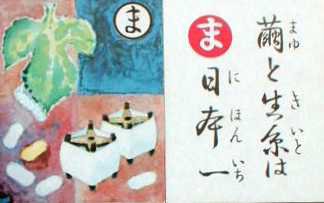 ま
ま
繭と生糸は
まゆ きいと
日本一
にほんいち